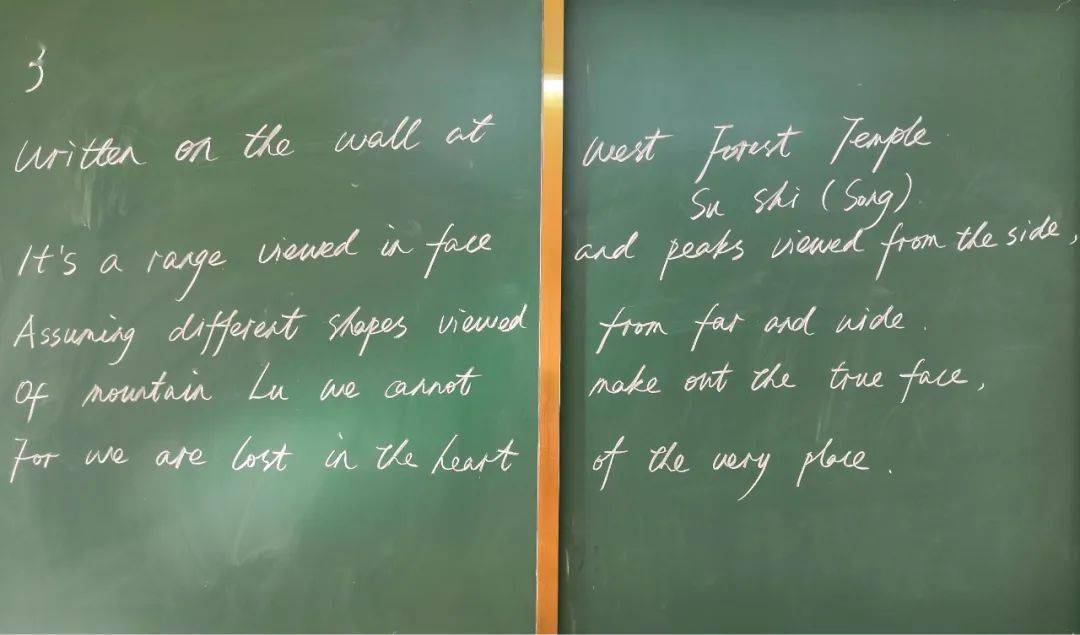 3
Written on the wall at West Forest Temple
Su Shi (Song)
It's a range viewed in face and peaks viewed from the side,
Assuming different shapes viewed from far and wide.
Of mountain Lu we cannot make out the true face,
For we are lost in the heart of the very place.